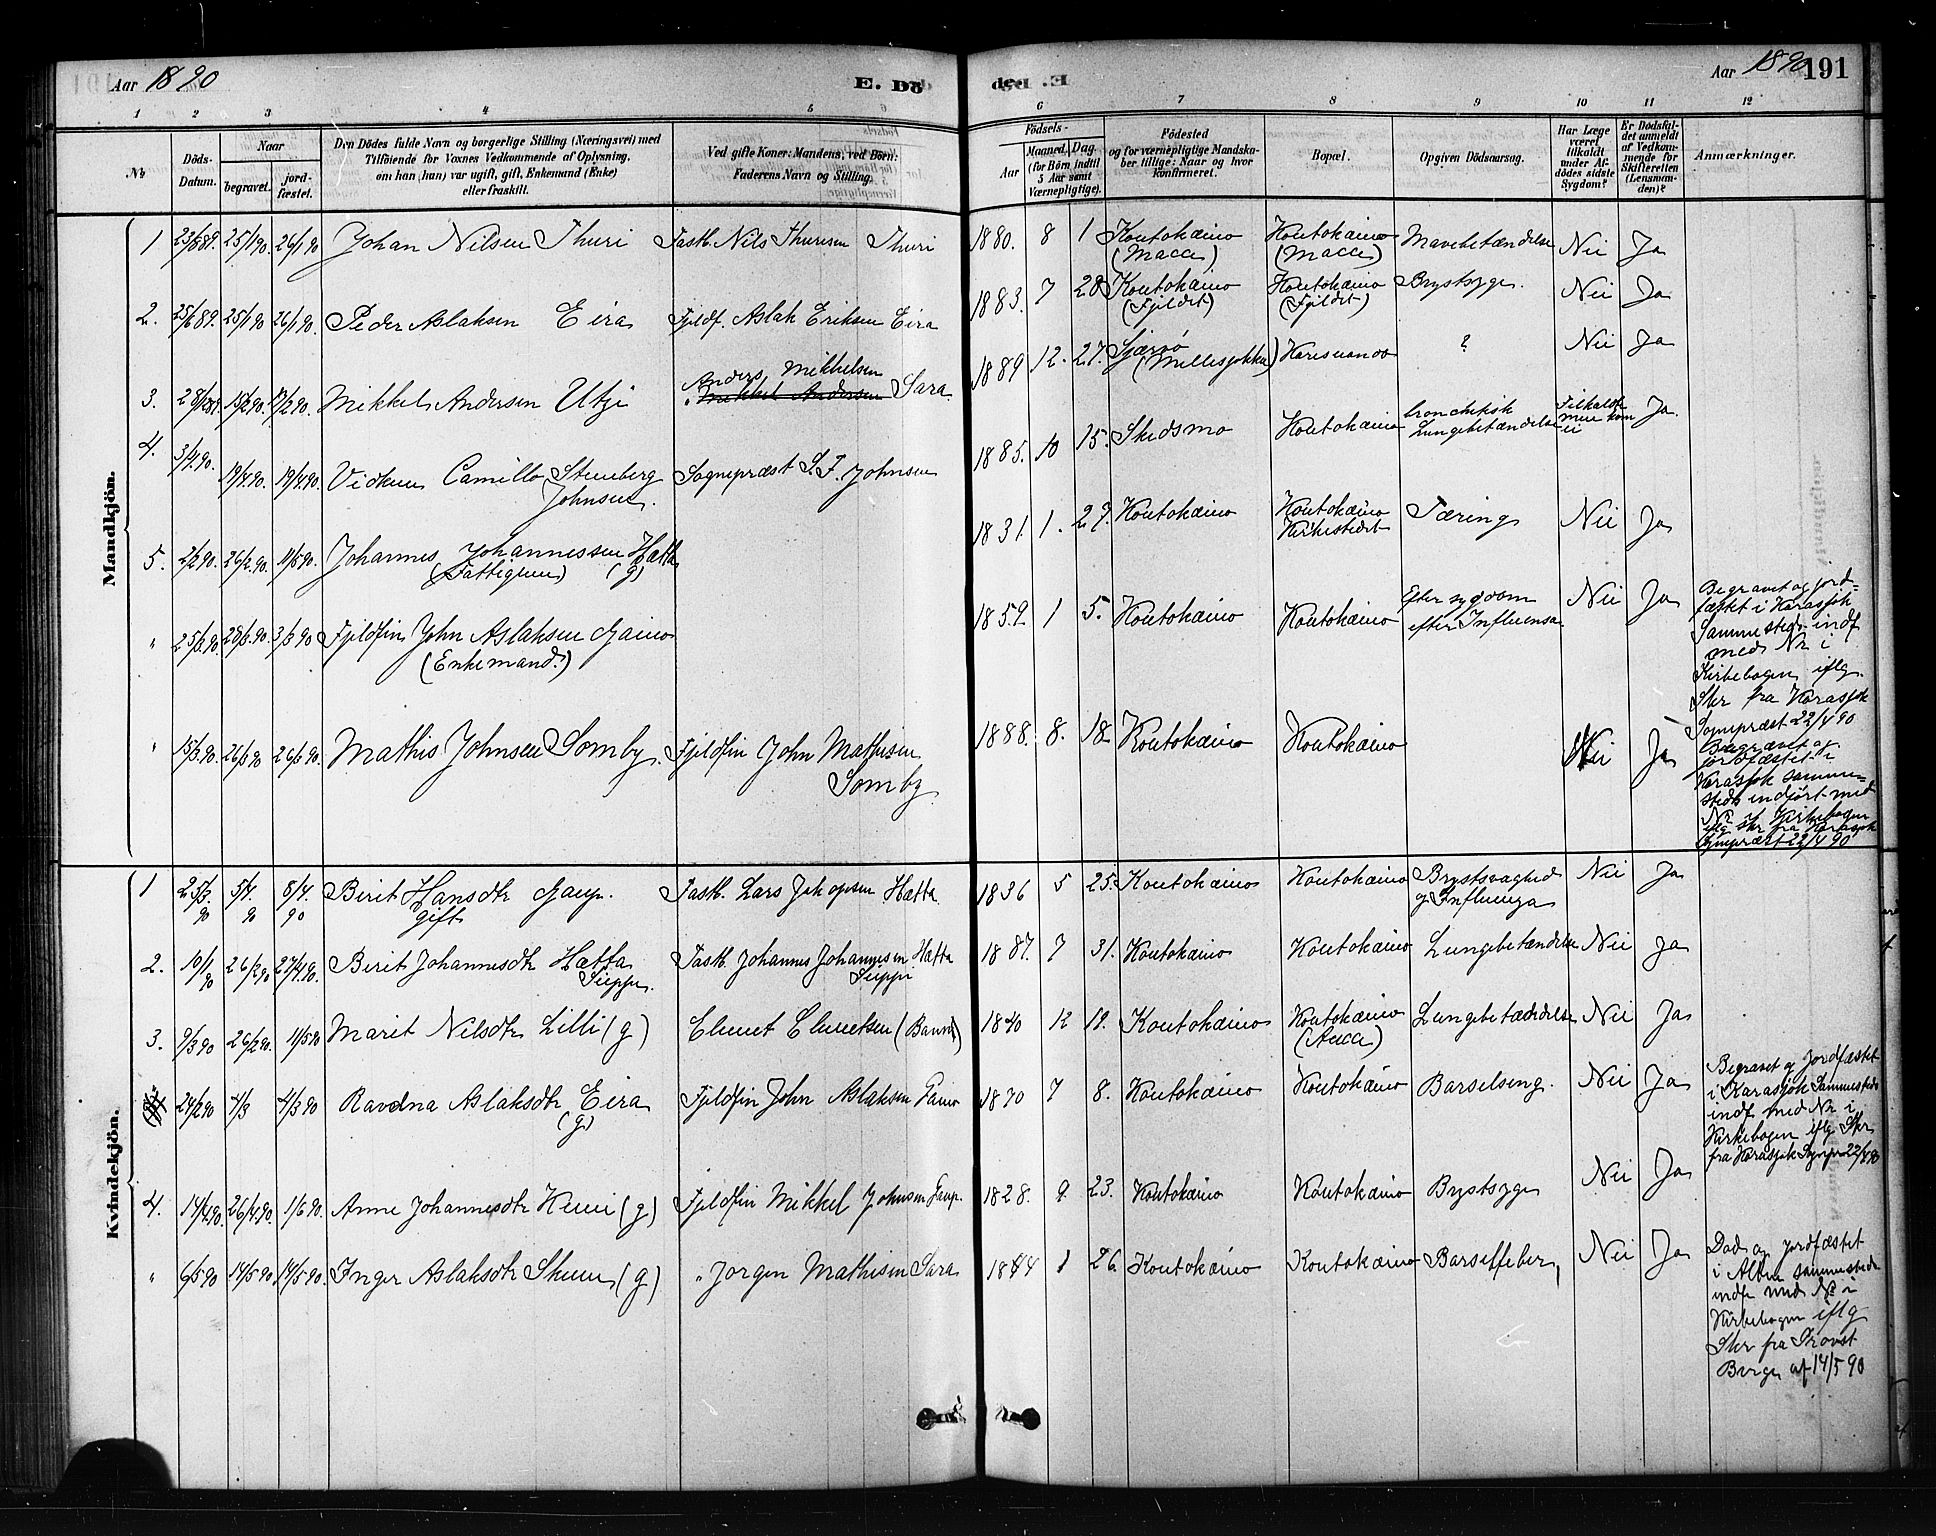 Aar 1890
E. Dö
de.
1 2 3 4 5
№
Döds-Datum.
Naar
begravet.
jord-fæstet.
Den Dödes fulde Navn og borgerlige Stilling (Næringsvei) med
Tilföiende for Voxnes Vedkommende af Oplysning,
om han (hun) var ugift, gift, Enkemand (Enke)
eller fraskilt.
Ved gifte Koner: Mandens, ved Börn:
Faderens Navn og Stilling.
Aar 1890 191
6 7 8 9 10 11 12
Födsels-
Aar
Maaned. Dag.
(for Börn indtil
5 Aar samt
Værnepligtige).
Födested
og for værnepligtige Mandska-
ber tillige: Naar og hvor
konfirmeret.
Bopæl.
Opgiven Dödsaarsag.
Har Læge
været
tilkaldt
under Af-
dödes sidste
Sygdom?
Er Dödsfal-
det anmeldt
af Vedkom-
mende for
Skifteretten
(Lensman-
den)?
Anmærkninger.
Mandkjön.
1 23/5 89. 25/1 90. 26/1 90 Johan Nilsen Thuri Fastb. Nils Thuresen Thuri 1880. 8 1 Koutokæino (Macci) Koutokæino (Macci) Mavebetændelse Nei Ja
2. 25/6 89. 25/1 90 26/1 90. Peder Aslaksen Eira Fjeldf. Aslak Eriksen Eira 1883. 7 28 Koutokæino (Fjeldet) Koutokæino (Fjeldet) Brystsyge. Nei Ja
3. 15/2 90. Mikkel Andersen Utsi Anders Mikkelsen Mikkel Andersen Sara 1889 12. 27. Karesuando ? Nei Ja
4. 3/4 90. 19/4 90. 19/4 90. Vidkun Camillo Stenberg Johnsen. Sognepræst S.F. Johnsen 1885. 10 15. Skedsmo Koutokæino bronchitisk Lungebetændelse Tilkaldt men kom ei Ja.
5. 2/2 90. 26/2 90. 11/5 90. Johannes Johannessen Hætta (Fattiglem) (g) 1831. 1. 29. Koutokæino Koutokæino Kirkestedet Tæring Nei Ja
" 25/2 90. 28/2 90. 3/3 90 Fjeldfin John Aslaksen Gaino (Enkemand.) 1859. 1 5. Koutokæino Koutokæino Eftersygdom efter Influensa Nei Ja
Begravet og jord-
fæstet i Karasjok
Sammesteds indf.
med Nr i
Kirkebogen iflg.
Skr fra Karasjok
Sognepræst 22/4 90
" 15/3 90. 26/3 90 26/3 90. Mathis Johnsen Somby. Fjeldfin John Mathisen Somby 1888. 8. 18 Koutokæino Koutokæino Nei Ja
Begravet og
jordfæstet i
Karasjok samme-
steds indført med
Nr i Kirkebogen
iflg skr fra Karasjok
Sognepræst 22/4 90
Kvindekjön.
1 25/3 90 5/4 90 8/4 90 Berit Hansdtr Gaup. gift Fastb. Lars Jakopsen Hætta 1836 5 25. Koutokæino Koutokæino Brystsvaghed og Influenza Nei Ja
2. 10/1 90 26/2 90 27/4 90. Berit Johannesdtr Hætta Siuppi. Fastb. Johannes Johannesen Hætta Siuppi 1887. 7 31. Koutokæino Koutokæino Lungebetændelse Nei Ja
3. 9/3 90 26/2 90. 11/5 90 Marit Nilsdtr Lilli (g) Clemet Clemetsen (Banne) 1840 12 19. Koutokæino Koutokæino (Aucci) Lungebetændelse Nei Ja
24/2 90 4/3 4/3 90 Ravdna Aslaksdtr Eira (g) Fjeldfin John Aslaksen Gaino 1870 7 8. Koutokæino Koutokæino Barselseng. Nei Ja
Begravet og jordfæstet
i Karasjok Sammesteds
indf. med Nr i
Kirkebogen iflg Skr
fra Karasjok Sognepr 22/4 90
4. 14/4 90. 26/4 90. 1/6 90. Anne Johannesdtr Hemi (g) Fjeldfin Mikkel Johnsen Gaup. 1828. 9. 23. Koutokæino Koutokæino Brystsyge Nei Ja
" 6/5 90 14/5 90 14/5 90. Inger Aslaksdtr Skum (g) " Jørgen Mathisen Sara 1844 1 26. Koutokæino Koutokæino Barselfeber, Nei Ja
Død og jordfæstet
i Alten sammesteds
indf. med Nr i
Kirkebogen iflg
Skr fra Provst
Berge af 14/5 90